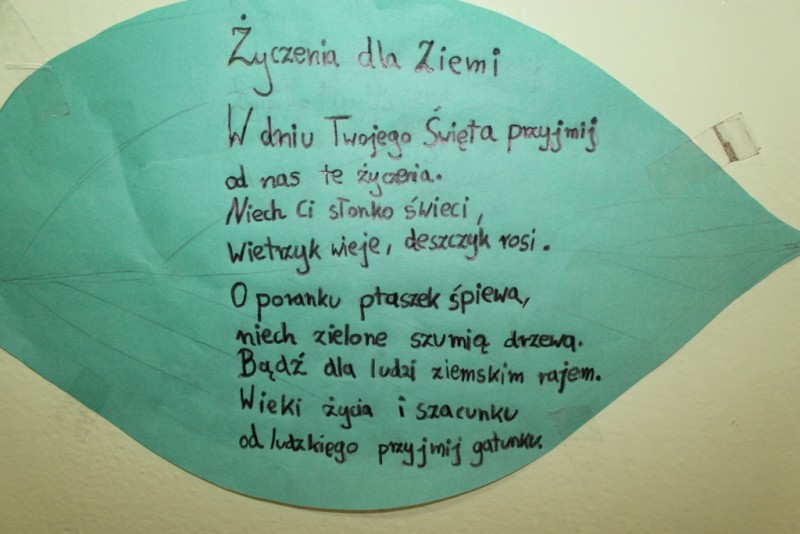 Życzenia dla Ziemi
W dniu Twojego Święta przyjmij
od nas te życzenia.
Niech Ci słonko świeci,
Wietrzyk wieje, deszczyk rosi.
O poranku ptaszek śpiewa,
niech zielone szumią drzewa.
Bądź dla ludzi ziemskim rajem.
Wieki życia i szacunku
od ludzkiego przyjmij gatunku.